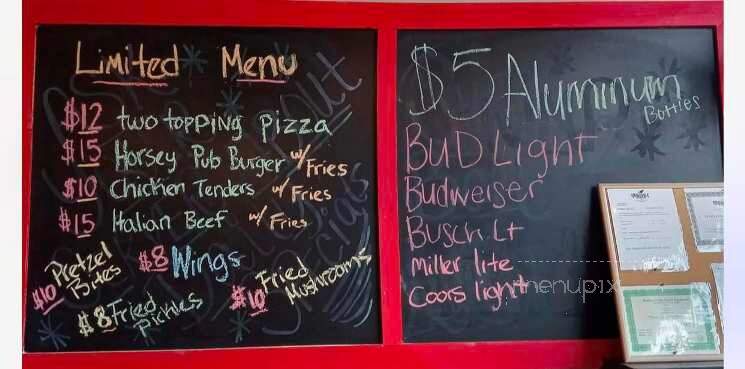 Limited Menu
$12 two topping pizza
$15 Horsey Pub Burger w/ Fries
$10 Chicken Tenders w/ Fries
$15 Italian Beef w/ Fries
$10 Pretzel Bites
$8 Wings
$8 Fried Pickles
$10 Fried Mushrooms
$5 Aluminum
Bottles
BUD Light
Budweiser
Busch Lt
Miller lite
Coors light
menupix